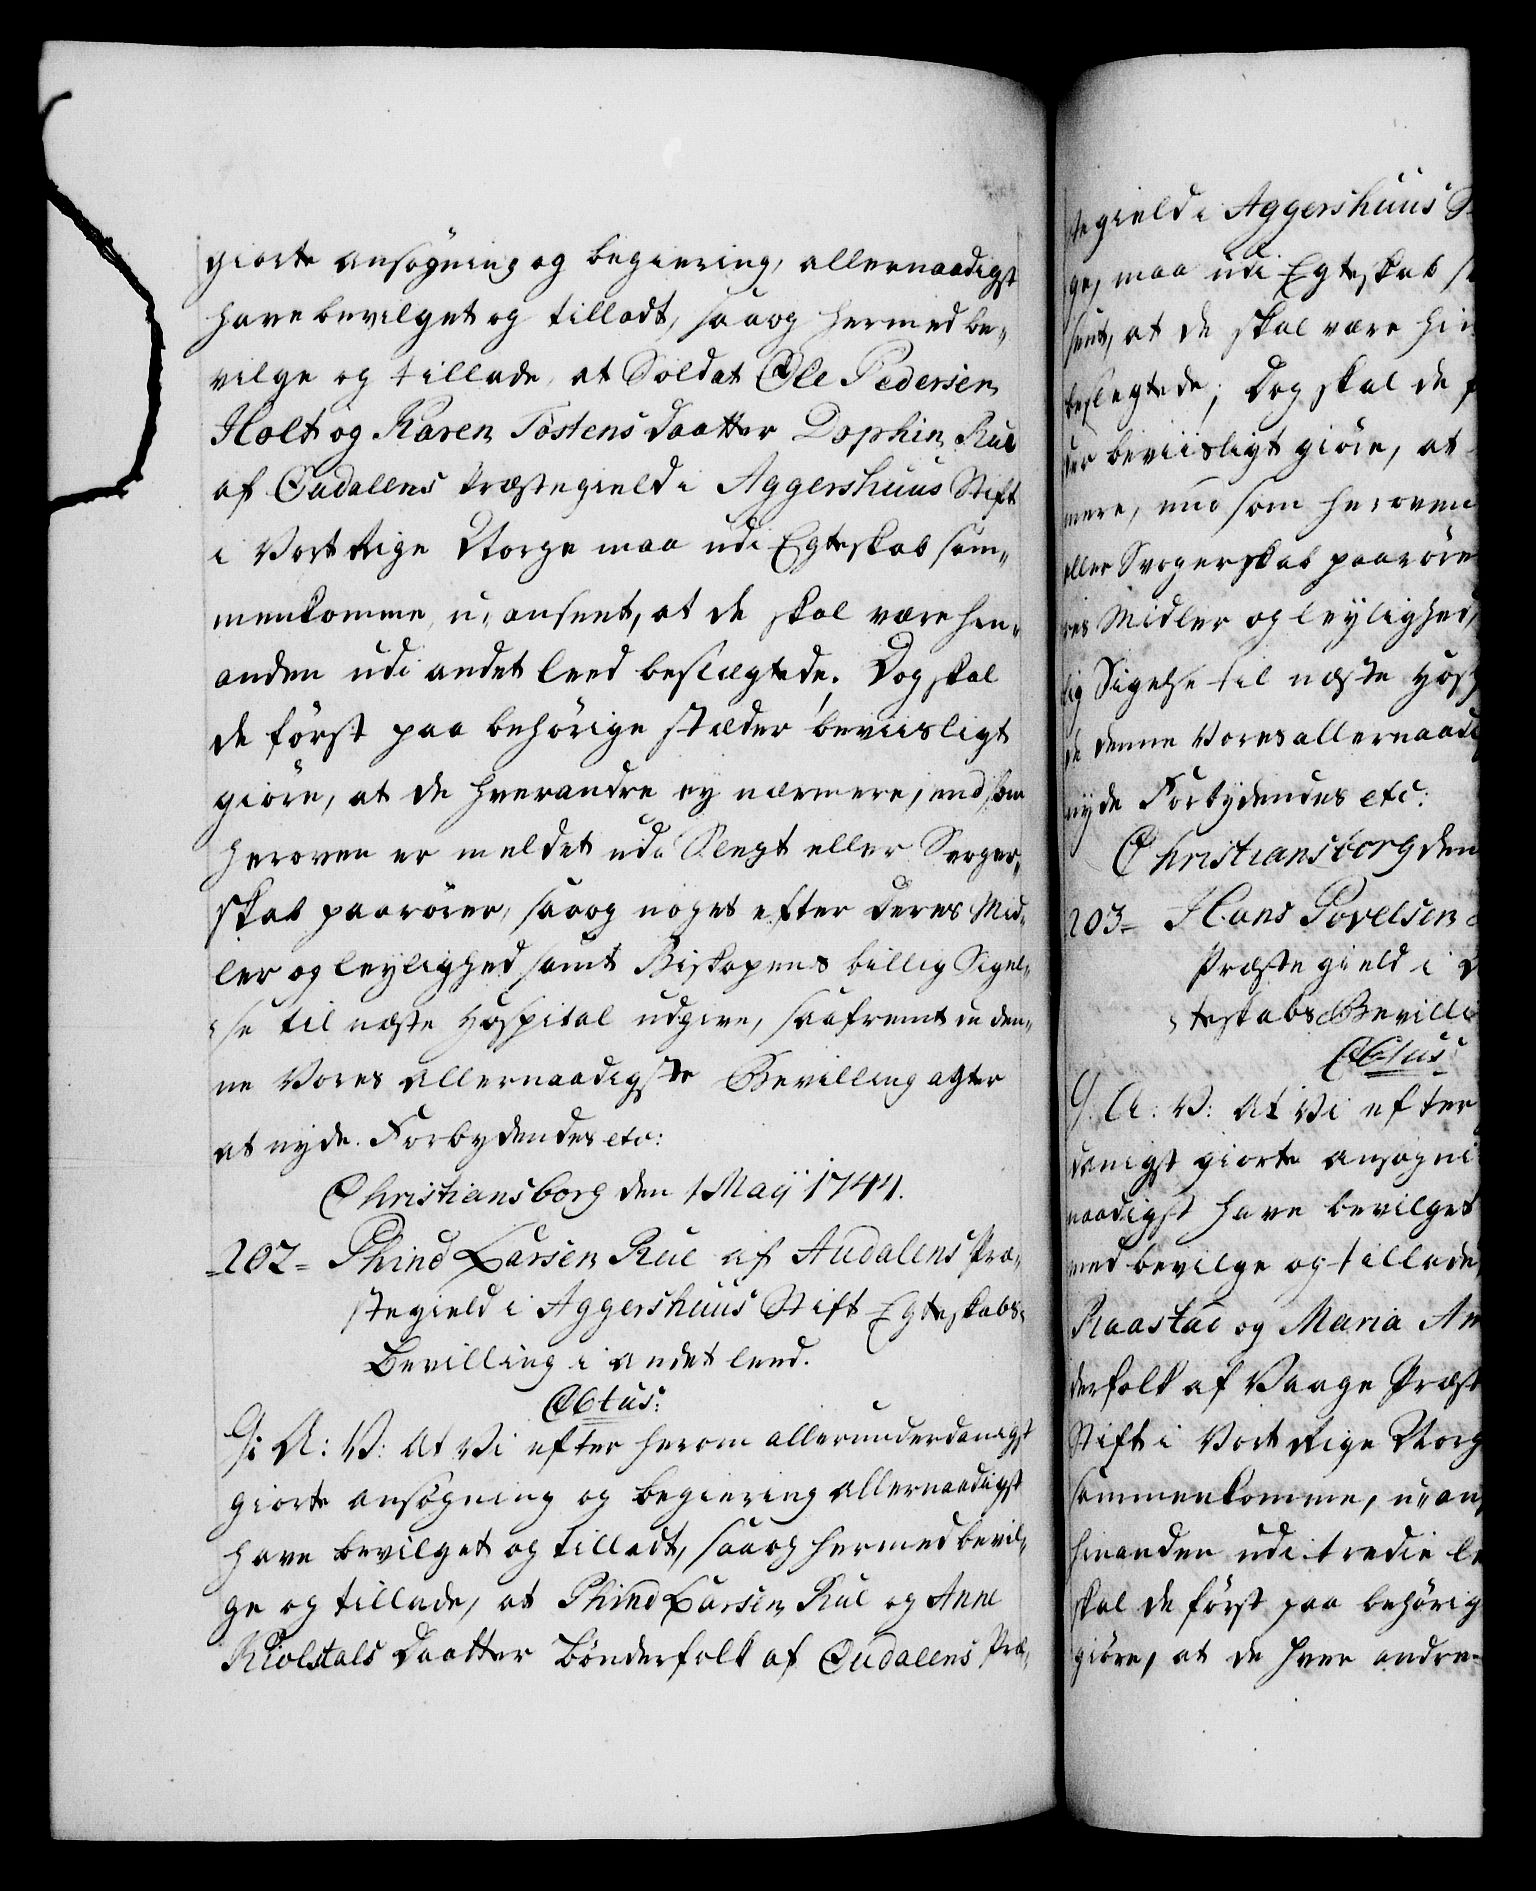 giorte ansøgning og begiering, allernaadigst
have bevilget og tilladt, saa og hermed be-
vilge og tillade, at Soldat Ole Pedersen
Holt og Karen Tostens daatter Dophin Rue
af Oudalens Præstegield i Aggershuus Stift
i Vort Rige Norge maa udi Egteskab sam-
menkomme, u-anseet, at de skal være hin-
anden udi andet leed beslægtede; Dog skal
de først paa behørige stæder beviisligt
giøre, at de hverandre ey nærmere, end som
heroven er meldet udi Slegt eller Svoger-
skab paarører, saa og noget efter deres Mid-
ler og leylighed samt Biskopens billig Sigel-
se til næste Hospital udgive, saafremt de den-
ne Vores allernaadigste Bevilling agter
at nyde. Forbydendes etc:
Christiansborg den 1 Maij 1744.
202 Phind Larsen Rue af Audalens Præ-
stegield i Aggershuus Stift Egteskabs-
Bevilling i andet leed.
C6tus:
G: A: V: At Vi efter herom allerunderdanigst
giorte ansøgning og begiering allernaadigst
have bevilget og tilladt, saa og hermed bevil-
ge og tillade, at Phind Larsen Rue og Anne
Kiolstals Daatter Bønderfolk af Oudalens Præ-
stegield i Aggershuus
ge, maa udi Egteskab
seet, at de skal være hin
beslegtede; Dog skal de
beviisligt giøre, at
mere, end som heroven
eller Svogerskab paarøre
res Midler og leylighed,
lig Sigelse til næste Hosp
de denne Vores allernaadi
nyde Forbydendes etc:
Christiansborg den
203 Hans Povelsen
Præstegield i
teskabs Bevilli
C6tus:
G: A: V: At Vi efter
danigst giorte ansøgni
naadigst have bevilget
med bevilge og tillade,
Raastad og Maria An
derfolk af Vaage Præst
Stift i Vort Rige Norg
sammenkomme, u-an
hinanden udi tredie le
skal de først paa behørig
giøre, at de hver andre